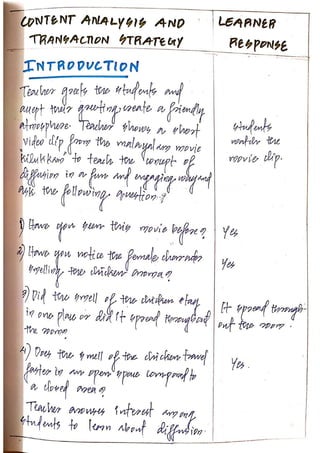 CONTENT ANALYSIS AND
TRANSACTION STRATEGY
LEARNER
RESPONSE
INTRODUCTION
Teacher greets the students and
accept their greeting, create a friendly
atmosphere. Teacher shows a short
video clip from the malayalam movie
"Kilukkam" to teach the concept of
diffusion in a fun and engaging way and
ask the following question?
students
watch the
movie clip.
1) Have you seen this movie before?
Yes
2) Have you notice the female character
smelling the chicken aroma?
Yes
3) Did the smell of the chicken stay
in one place or did it spread throughout
the room?
It spread through-
out the room.
4) Does the smell of the chicken travel
faster in an open space compared to
a closed area?
Yes.
Teacher arouses interest among
students to learn about diffusion.